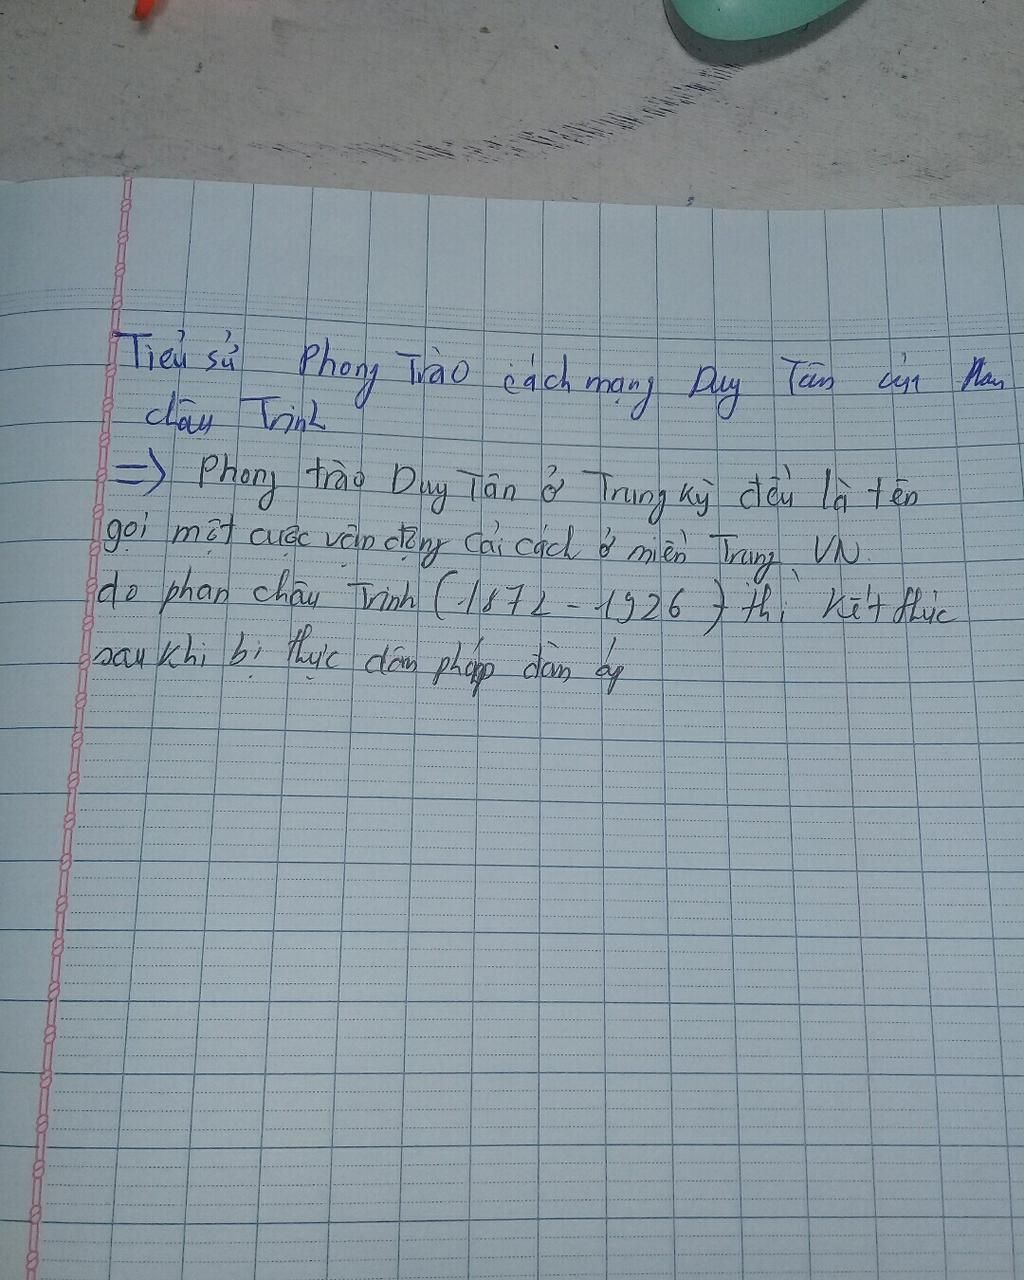 Tiểu sử Phong Trào cách mạng Duy Tân của Phan
châu Trinh
=> Phong trào Duy Tân ở Trung kỳ đều là tên
gọi một cuộc vận động cải cách ở miền Trung VN.
do phan châu Trinh (1872 - 1926) thì kết thúc
sau khi bị thực dân pháp đàn áp